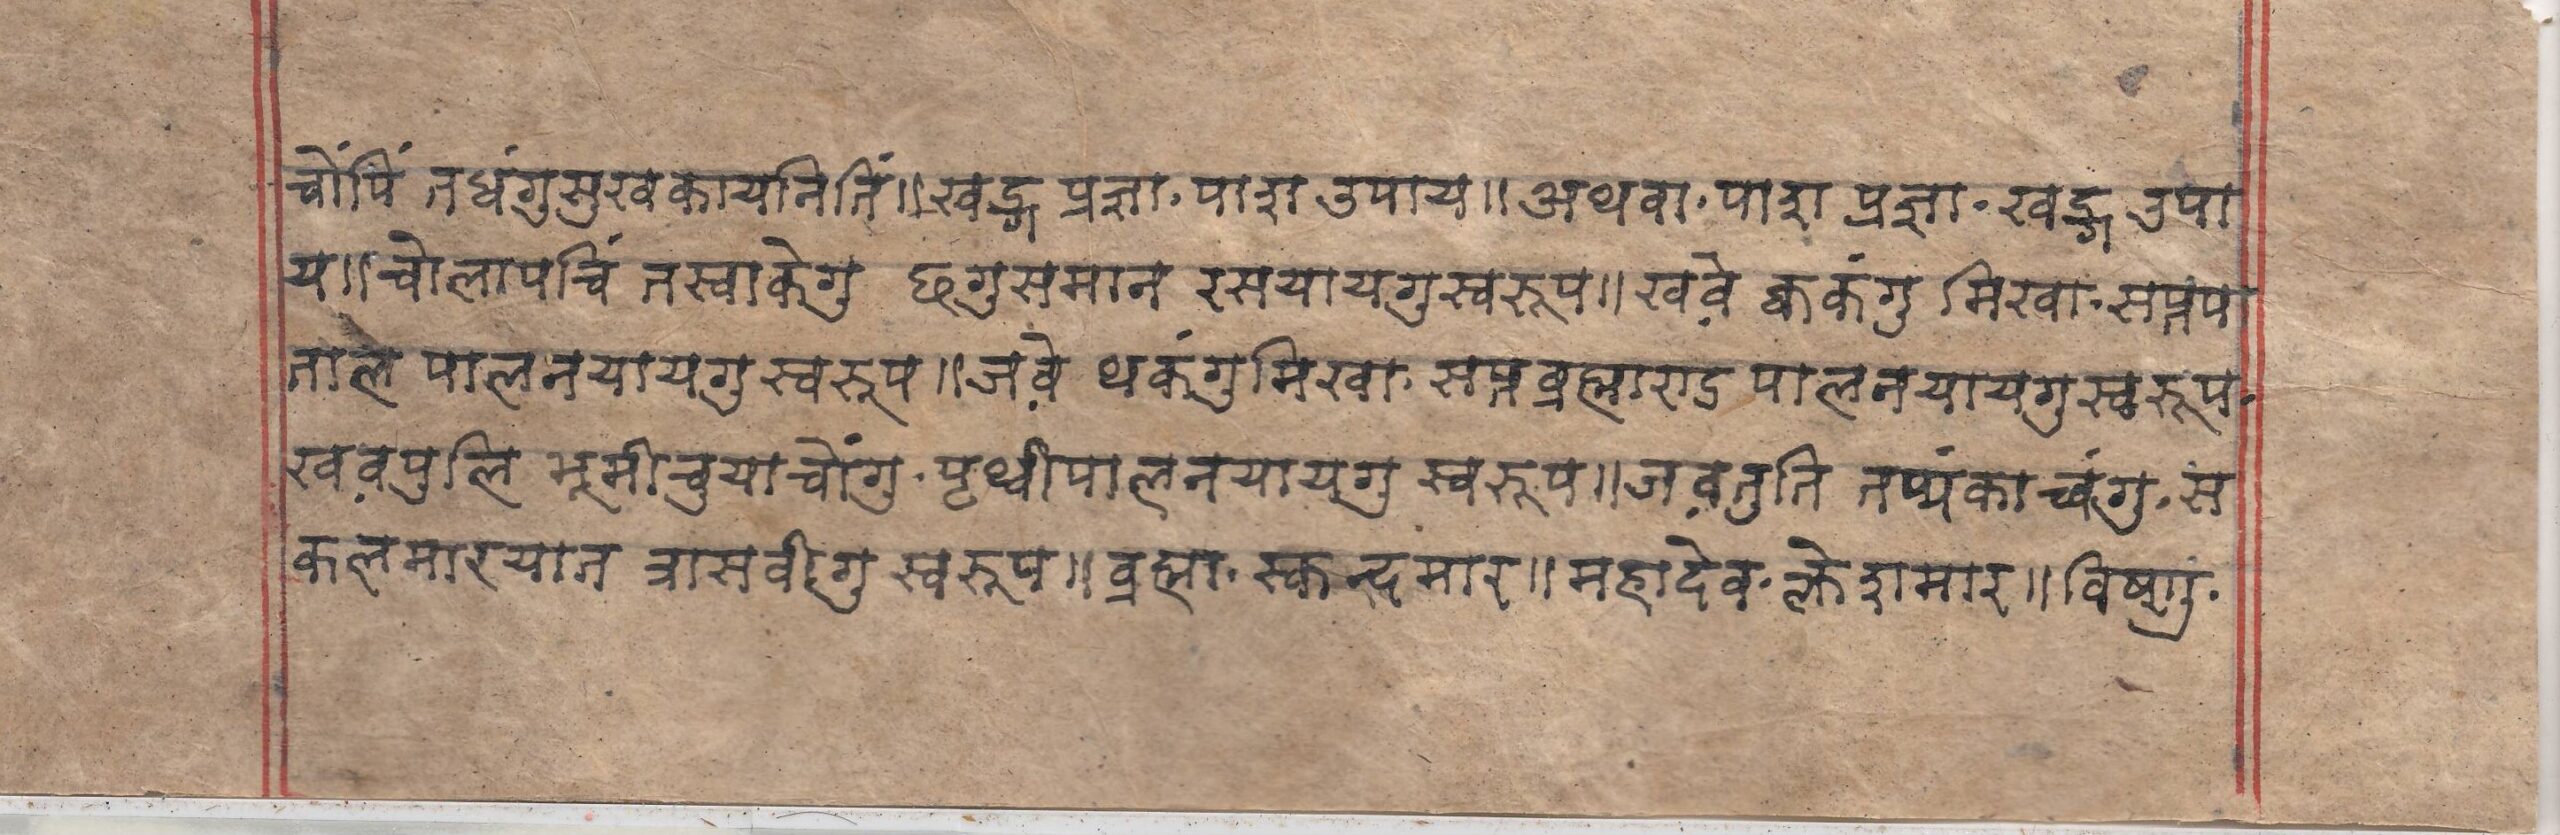 चोंपिं तधंगुसुखकायनितिं॥खड्ग प्रज्ञा·पाश उपाय॥अथवा·पाश प्रज्ञा·खड्ग उपा
य॥चोलापचिं तस्वाकेगु छगुसमान रसयायगुस्वरूप॥खव़े क्वकंगु मिखा·सप्तप
ताले पालनयायगु स्वरूप॥जव़े थकंगुमिखा·सप्तब्रह्माराड पालनयायगुस्वरूप·
खव़पुलि भूमीचुयाचोंगु·पृथ्वीपालनयायगु स्वरूप॥जव़तुति तप्यंकाच्वंगु·स
कलमारयात त्रासवीगु स्वरूप॥ब्रह्मा·स्कन्दमार॥महादेव·क्लेशमार॥विष्णु·